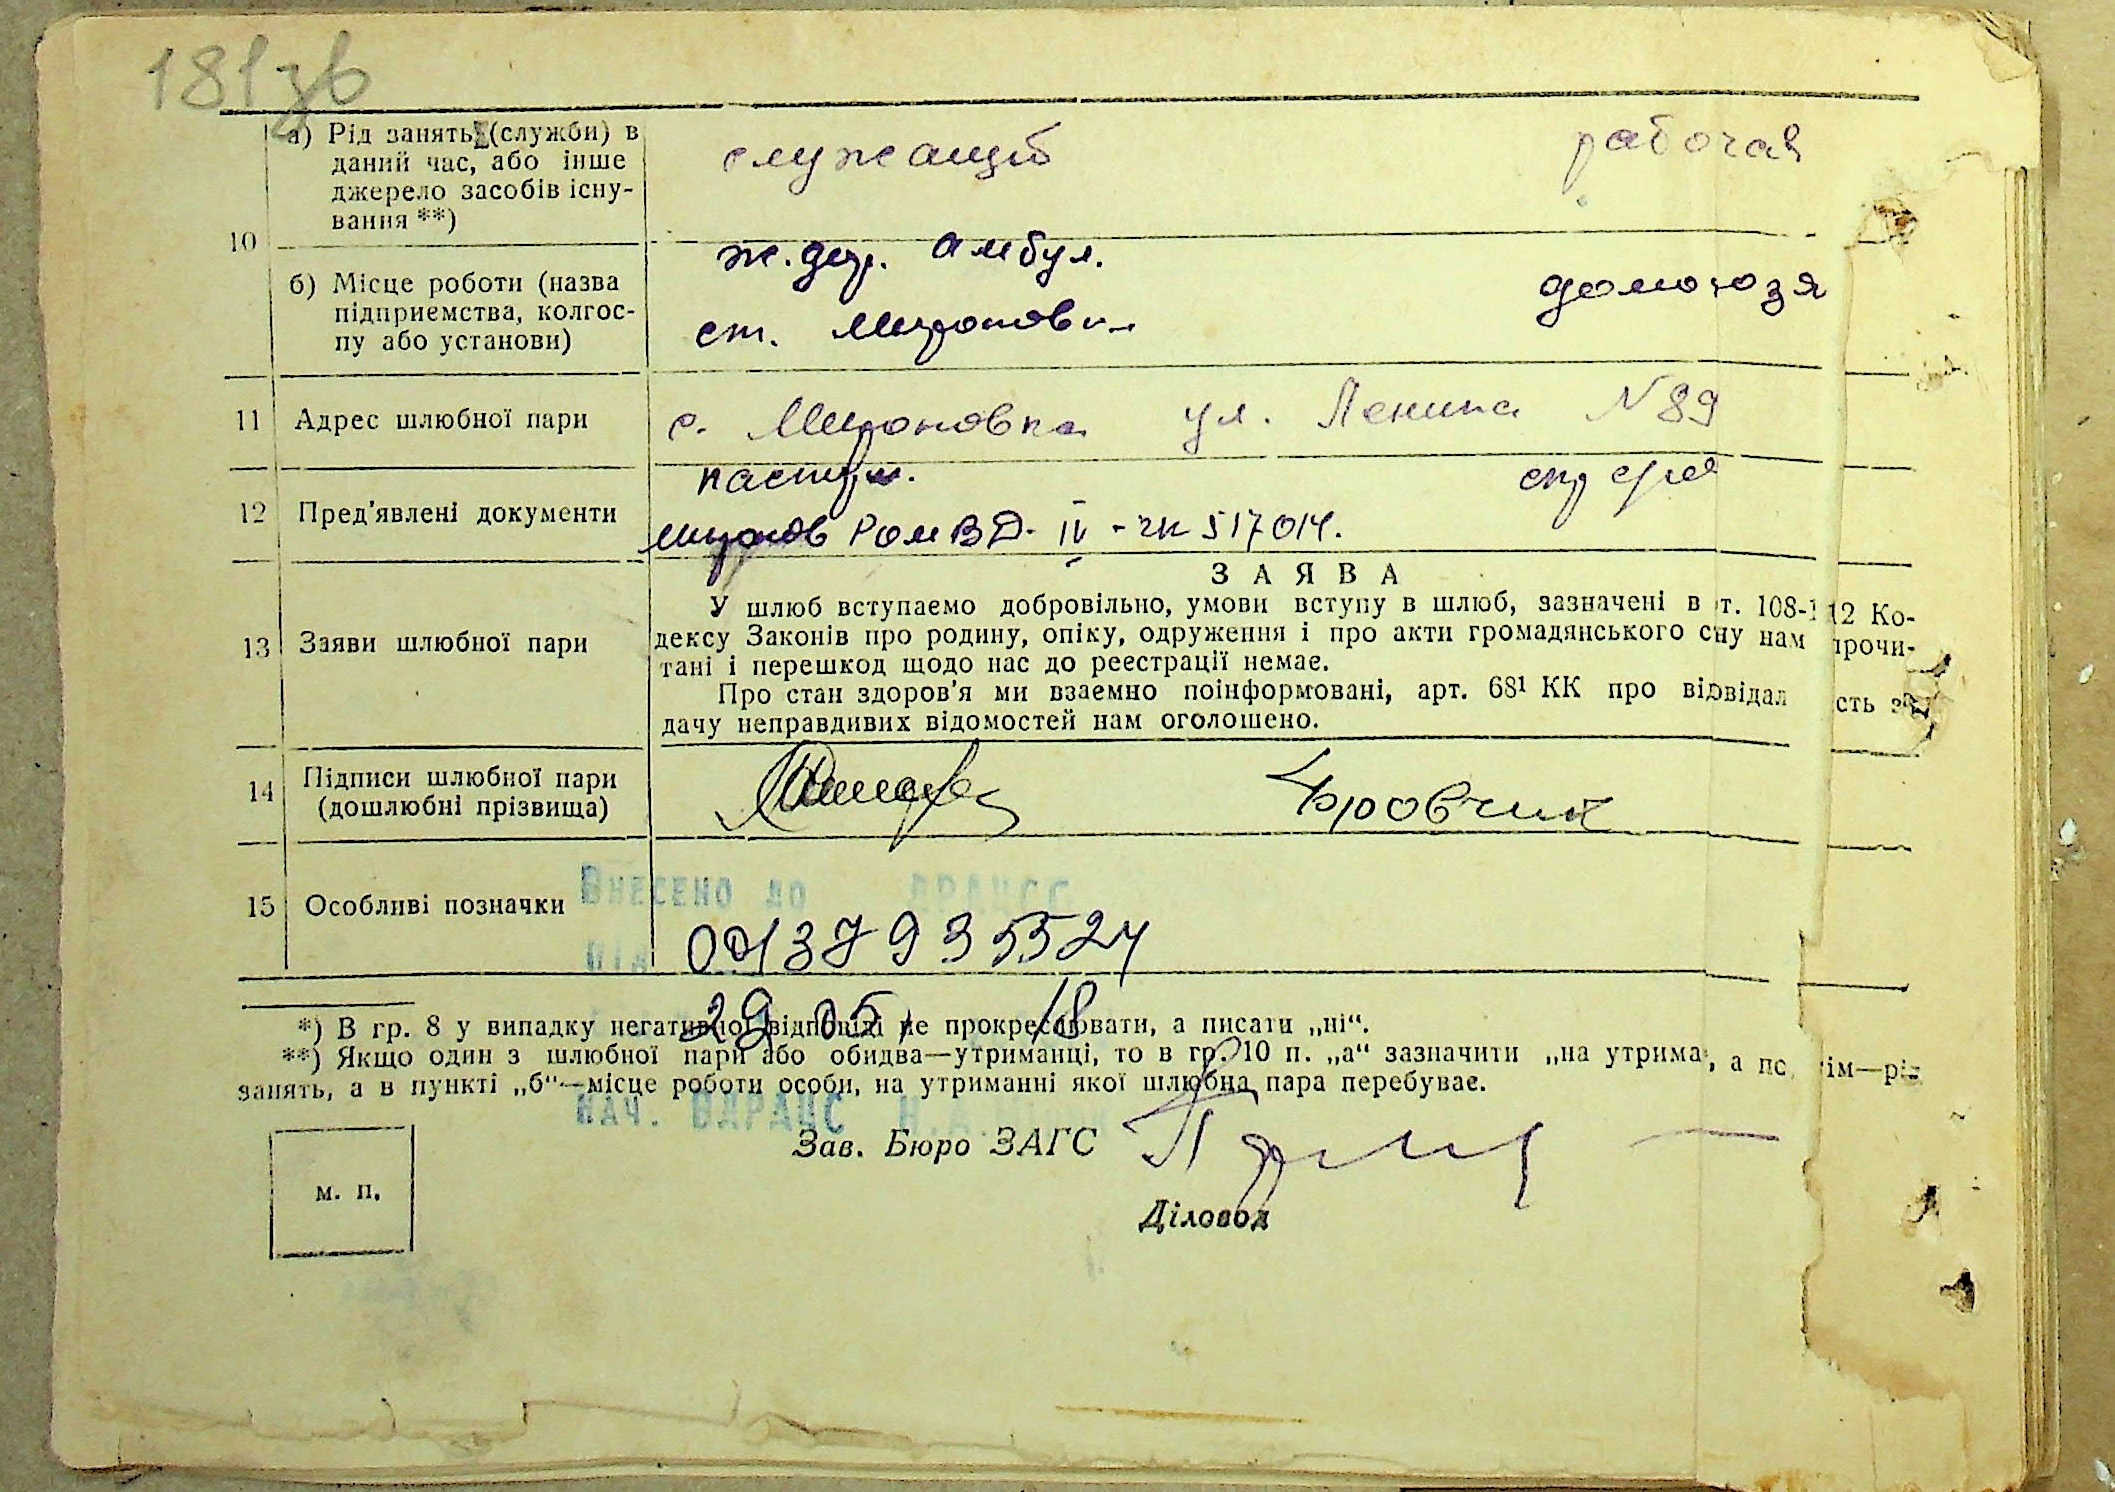 181зв
а) Рід занять (служби) в
даний час, або інше
джерело засобів існу-
вання **)
служащий рабочая
10
б) Місце роботи (назва
підприемства, колгос-
пу або установи)
ж.дор. Амбул.
ст. Мироновк
11 Адрес шлюбної пари
с. Мироновка ул. Ленина N 89
12 Пред'явлені документи
паспорт.
Миронов РОМВД. IV - 517014.
13 Заяви шлюбної пари
ЗАЯВА
У шлюб вступаемо добровільно, умови вступу в шлюб, зазначені в т. 108-112 Ко-
дексу Законів про родину, опіку, одруження і про акти громадянського с ну нам прочи-
тані і перешкод щодо нас до реестрації немає.
Про стан здоров'я ми взаемно поінформовані, арт. 68¹ КК про відвідал сть з
дачу неправдивих відомостей нам оголошено.
14 Підписи шлюбної пари
(дошлюбні прізвища)
15 Особливі позначки
Внесено до ДРАЦСГ
00137935524
29 05, 18
*) В гр. 8 у випадку негативної відповіді не прокреслювати, а писати „ні“.
**) Якщо один з шлюбної пари або обидва—утриманці, то в гр. 10 п. „а“ зазначити „на утрима , а по ім—рід
занять, а в пункті „б“—місце роботи особи, на утриманні якої шлюбна пара перебуває.
НАЧ. ВДРАЦС
Зав. Бюро ЗАГС
м. п.
Діловод